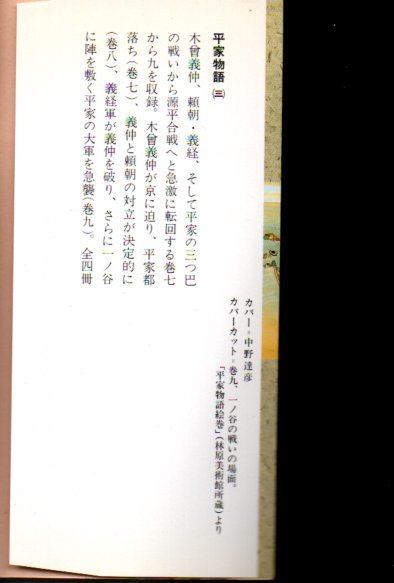 平家物語 ㈢
木曾義仲、頼朝・義経、そして平家の三つ巴
の戦いから源平合戦へと急激に転回する巻七
から九を収録。木曾義仲が京に迫り、平家都
落ち(巻七)、義仲と頼朝の対立が決定的に
(巻八)、義経軍が義仲を破り、さらに一ノ谷
に陣を敷く平家の大軍を急襲(巻九)。全四冊
カバー＝中野達彦
カバーカット＝巻九、一ノ谷の戦いの場面。
「平家物語絵巻」(林原美術館所蔵)より